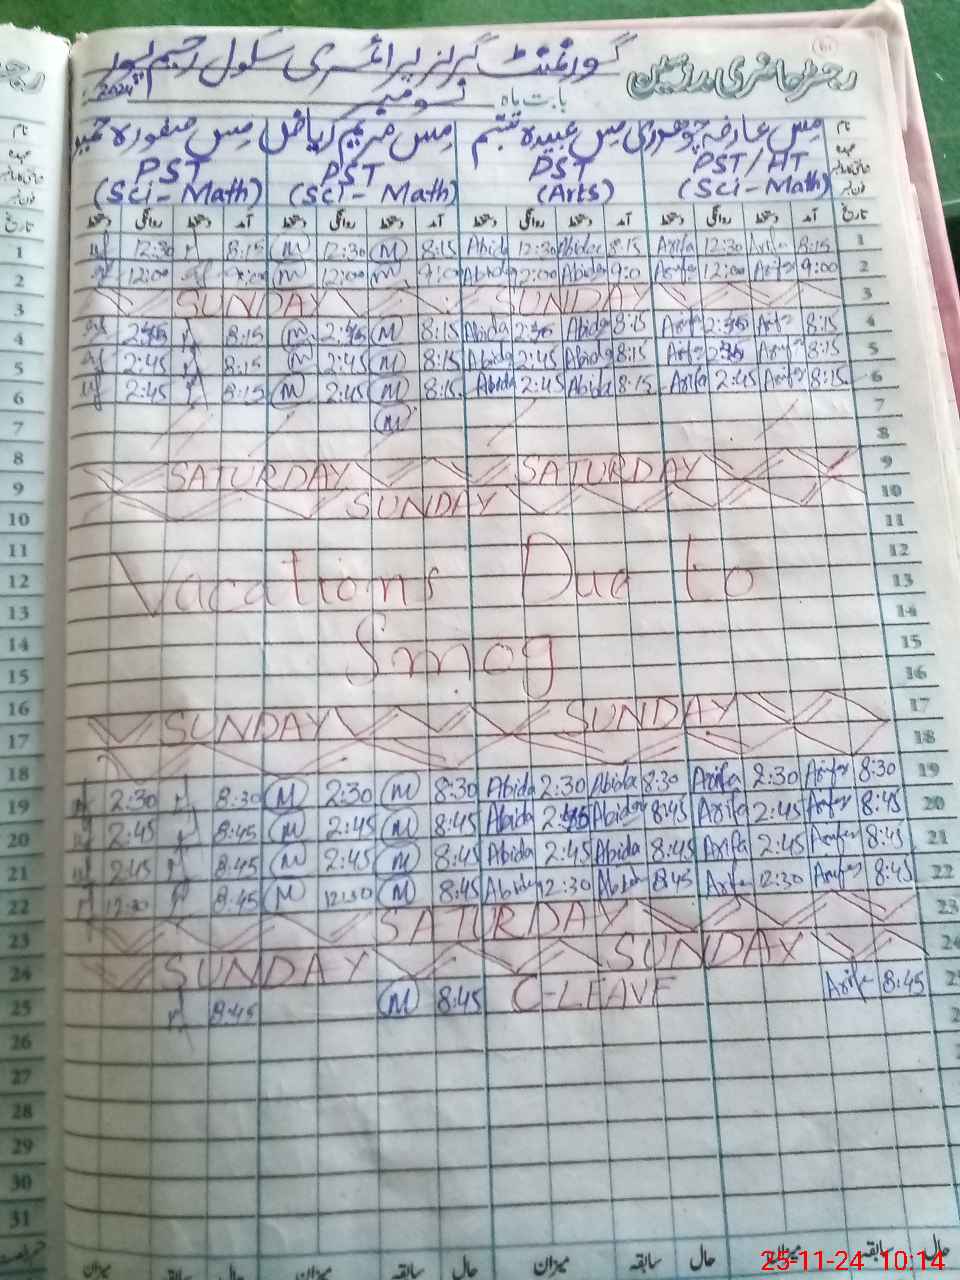 رجسٹر حاضری مدارسین
گورنمنٹ گرلز پرائمری سکول رحیم پور
بابت ماہ نومبر 2024
نام مس عارفہ چوھدری مس عبیدہ تبسم مس مریم ریاض مس صفورہ
عہدہ PST/HT PST PST PST
(Sci-Math) (Arts) (Sci-Math) (Sci-Math)
تاریخ آمد دستخط روانگی دستخط آمد دستخط روانگی دستخط آمد دستخط روانگی دستخط آمد دستخط روانگی دستخط
1 12:30 8:15 M 12:30 M 8:15 Abida 12:30 Abida 8:15 Arifa 12:30 Arifa 8:15 1
2 12:00 9:00 M 12:00 M 9:00 Abida 12:00 Abida 9:0 Arifa 12:00 Arifa 9:00 2
3 SUNDAY SUNDAY 3
4 2:45 8:15 M 2:45 M 8:15 Abida 2:45 Abida 8:15 Arifa 2:45 Arifa 8:15 4
5 2:45 8:15 M 2:45 M 8:15 Abida 2:45 Abida 8:15 Arifa 2:45 Arifa 8:15 5
6 2:45 8:15 M 2:45 M 8:15 Abida 2:45 Abida 8:15 Arifa 2:45 Arifa 8:15 6
7 M 7
8 8
9 SATURDAY SATURDAY 9
10 SUNDAY 10
11 11
12 Vacations Due to 12
13 13
14 Smog 14
15 15
16 16
17 SUNDAY SUNDAY 17
18 18
19 2:30 8:30 M 2:30 M 8:30 Abida 2:30 Abida 8:30 Arifa 2:30 Arifa 8:30 19
20 2:45 8:45 M 2:45 M 8:45 Abida 2:45 Abida 8:45 Arifa 2:45 Arifa 8:45 20
21 2:45 8:45 M 2:45 M 8:45 Abida 2:45 Abida 8:45 Arifa 2:45 Arifa 8:45 21
22 12:30 8:45 M 12:30 M 8:45 Abida 12:30 Abida 8:45 Arifa 12:30 Arifa 8:45 22
23 SATURDAY 23
24 SUNDAY SUNDAY 24
25 8:45 M 8:45 C-LEAVE Arifa 8:45
26
27
28
29
30
31
حال سابقہ میزان حال سابقہ میزان حال سابقہ میزان حال سابقہ میزان
25-11-24 10:14